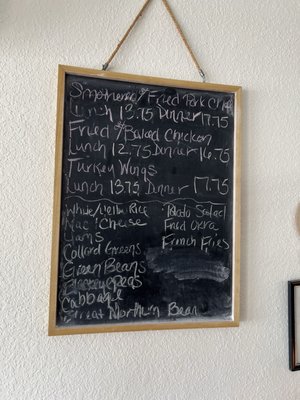 Smothered/Fried Pork Chop
Lunch 13.75 Dinner 17.75
Fried / Baked Chicken
Lunch 12.75 Dinner 16.75
Turkey Wings
Lunch 13.75 Dinner 17.75
White/Yellow Rice
Mac & Cheese
Yams
Collard Greens
Green Beans
Blackeye Peas
Cabbage
Great Northern Bean
Potato Salad
Fried Okra
French Fries